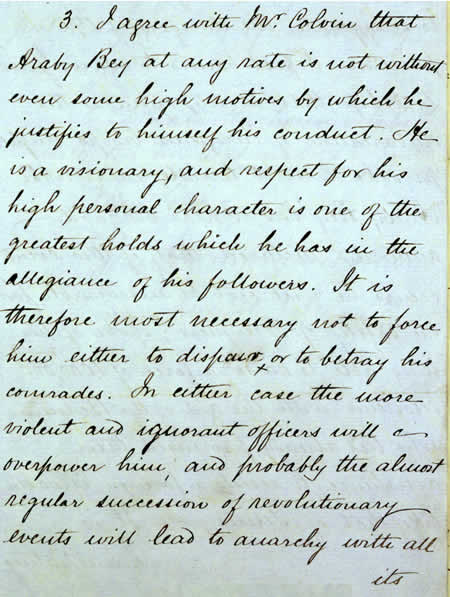 3. I agree with Mr Colvin that
Araby Bey at any rate is not without
even some high motives by which he
justifies to himself his conduct. He
is a visionary, and respect for his
high personal character is one of the
greatest holds which he has in the
allegiance of his followers. It is
therefore most necessary not to force
him either to dispair, or to betray his
comrades. In either case the more
violent and ignorant officers will
overpower him; and probably the almost
regular succession of revolutionary
events will lead to anarchy with all
its